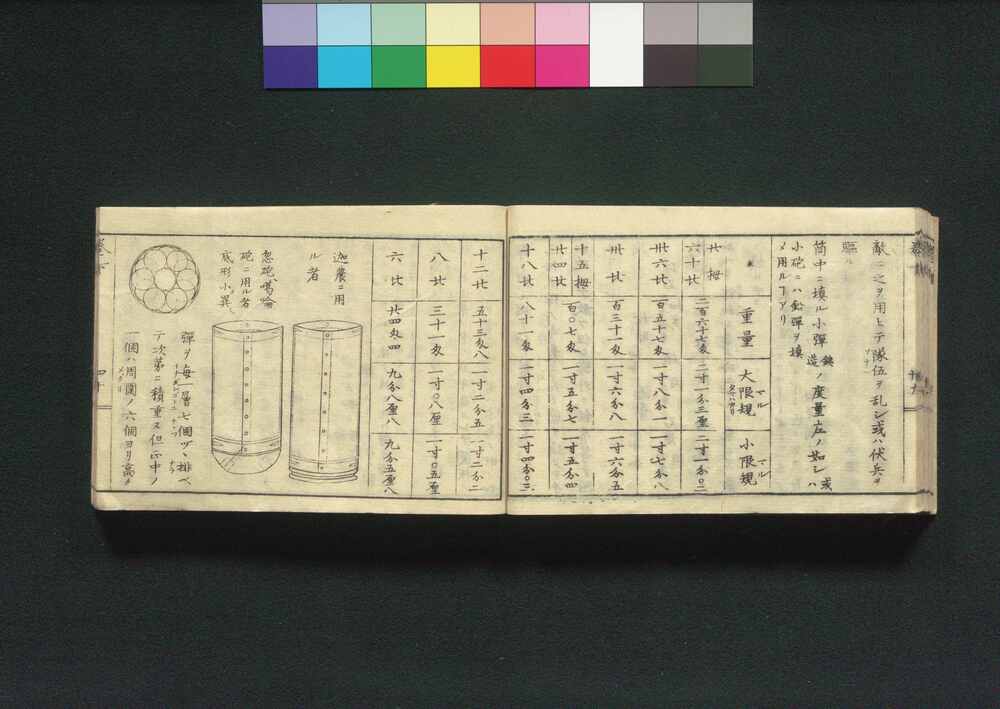 敵ニ之ヲ用ヒテ隊伍ヲ乱シ或ハ伏兵ヲ
驅ル
筒中ニ填ル小彈 鉄造ノ度量左ノ如シ或ハ
小砲ニハ鉛彈ヲ填
メ用ルヿアリ
重量 大限規 小限規
廿拇 六十比 二百六十七亥 二寸一分三厘 二寸一分〇二
卅六比 百五十七亥 一寸八分一 一寸七分八
卅比 百三十一亥 一寸六分八 一寸六分五
十五拇 廿四比 百〇七亥 一寸五分七 一寸五分四
十八比 八十一亥 一寸四分三 一寸四分〇三
十二比 五十三亥八 一寸二分五 一寸二分二
八比 三十一亥 一寸〇八厘 一寸〇五厘
六比 廿四亥四 九分八厘八 九分五厘八
迦農ニ用
ル者
忽砲葛喻
砲ニ用ル者
底形小異
彈ヲ毎一層七個ヅヽ排ベ
テ次第ニ積重ス但正中ノ
一個ハ周圍ノ六個ヨリ高キ